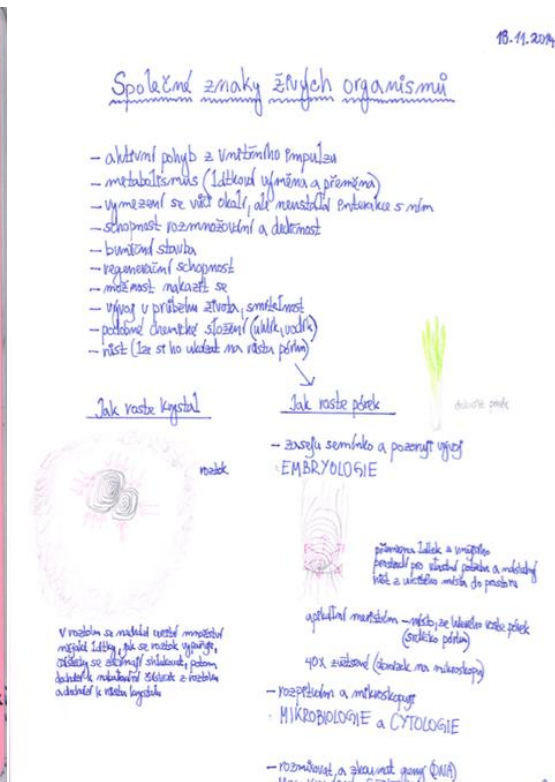 18.11.2014
Společné znaky živých organismů
– aktivní pohyb z vnitřního impulzu
– metabolismus (látková výměna a přeměna)
– vymezení se vůči okolí, ale neustálá interakce s ním
– schopnost rozmnožování a dědičnost
– buněčná stavba
– regenerační schopnost
– možnost nakazit se
– vývoj v průběhu života, smrtelnost
– podobné chemické složení (uhlík, vodík)
– růst (lze si ho ukázat na růstu pórku)
Jak roste krystal
roztok
V roztoku se nachází určité množství
nějaké látky, jak se roztok vypařuje,
částečky se začínají shlukovat, potom
dochází k nabalování částeček z roztoku
a dochází k růstu krystalu
Jak roste pórek
– zaseju semínko a pozoruji vývoj
EMBRYOLOGIE
přeměna látek z vnějšího
prostředí pro vlastní potřebu a následný
růst z určitého místa do prostoru
apikální meristém – místo, ze kterého roste pórek
(srdíčko pórku)
40x zvětšení (obrázek na mikroskopu)
– rozpitvám a mikroskopuji
MIKROBIOLOGIE a CYTOLOGIE
– rozmixovat a zkoumat geny (DNA)